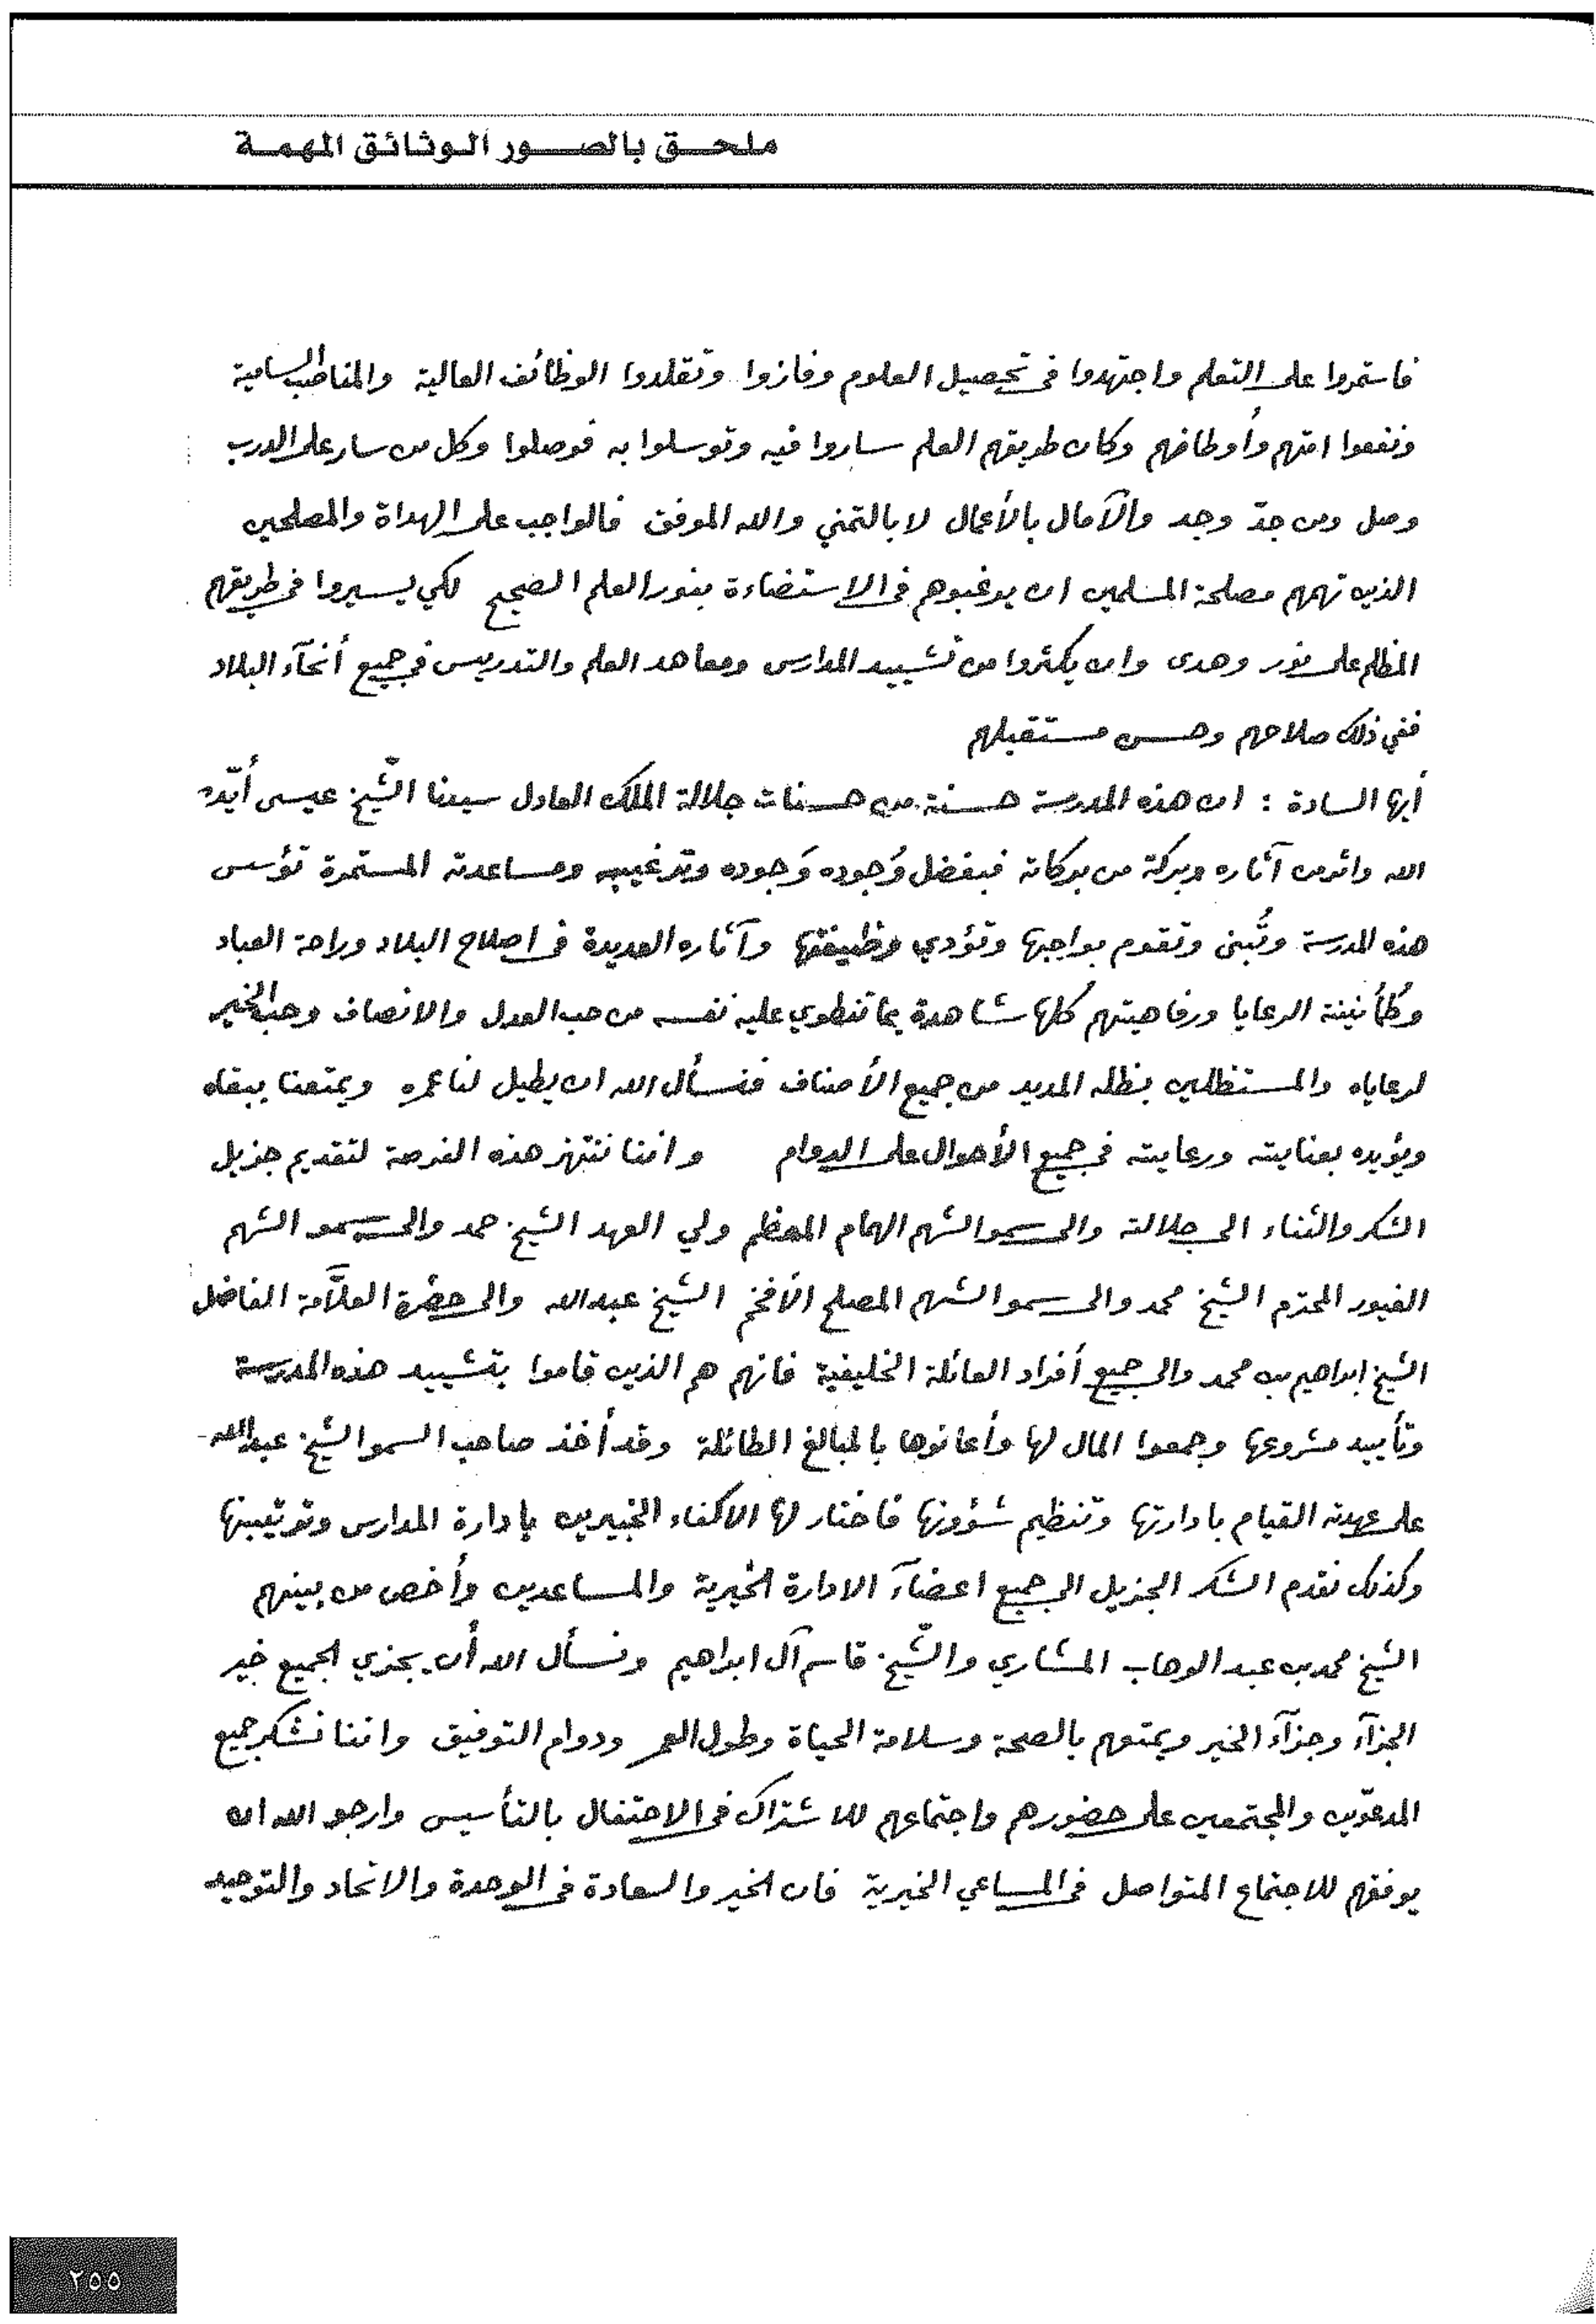 ملحق بالصور الوثائق المهمة
فاستمروا على التعلم واجتهدوا في تحصيل العلوم وفازوا وتقلدوا الوظائف العالية والمناصب السامية
ونفعوا امتهم وأوطانهم وكان طريقهم العلم ساروا فيه وتوسلوا به فوصلوا وكل من سار على الدرب
وصل ومن جدّ وجد والآمال بالأعمال لا بالتمني والله الموفق فالواجب على الهداة والمصلحين
الذين تهمهم مصلحة المسلمين ان يرغبوهم في الاستضاءة بنور العلم الصحيح لكي يسيروا في طريقهم
المظلم على نور وهدى وان يكثروا من تشييد المدارس ومعاهد العلم والتدريس في جميع أنحآء البلاد
ففي ذلك صلاحهم وحسن مستقبلهم
أيها السادة : ان هذه المدرسة حسنة من حسنات جلالة الملك العادل سيدنا الشّيخ عيسى أيّده
الله واثر من آثاره وبركة من بركاته فبفضل وُجوده وَجوده وترغيبه ومساعدته المستمرة تؤسس
هذه المدرسة وتُبنى وتقوم بواجبها وتؤدي وظيفتها وآثاره العديدة في اصلاح البلاد وراحة العباد
وطُمأنينة الرعايا ورفاهيتهم كلها شاهدة بما تنطوي عليه نفسه من حب العدل والانصاف وحب الخير
لرعاياه والمستظلين بظله المديد من جميع الأصناف فنسأل الله ان يطيل لنا عمره ويمتعنا ببقاه
ويؤيده بعنايته ورعايته في جميع الأحوال على الدوام واننا ننتهز هذه الفرصة لتقديم جزيل
الشكر والثناء الى جلالته والى سمو الشهم الهمام المعظم ولي العهد الشيخ حمد والى سمو الشهم
الغيور المحترم الشيخ محمد والى سمو الشهم المصلح الأفخم الشيخ عبدالله والى حضرة العلاَّمة الفاضل
الشيخ ابراهيم بن محمد والى جميع أفراد العائلة الخليفية فانهم هم الذين قاموا بتشييد هذه المدرسة
وتأييد مشروعها وجمعوا المال لها وأعانوها بالمبالغ الطائلة وقد أخذ صاحب السمو الشيخ عبدالله
على عهدته القيام بادارتها وتنظيم شؤونها فاختار لها الاكفاء الخبيرين بإدارة المدارس وترتيبها
وكذلك نقدم الشكر الجزيل الى جميع اعضآء الادارة الخيرية والمساعدين وأخص من بينهم
الشيخ محمد بن عبد الوهاب المشاري والشّيخ قاسم آل ابراهيم ونسأل الله أن يجزي الجميع خير
الجزآء وجزآء الخير ويمتعهم بالصحة وسلامة الحياة وطول العمر ودوام التوفيق واننا نشكر جميع
المدعوّين والمجتمعين على حضورهم واجتماعهم للاشتراك في الاحتفال بالتأسيس وارجو الله ان
يوفقهم للاجتماع المتواصل في المساعي الخيرية فان الخير والسعادة في الوحدة والاتحاد والتوحيد
٢٥٥